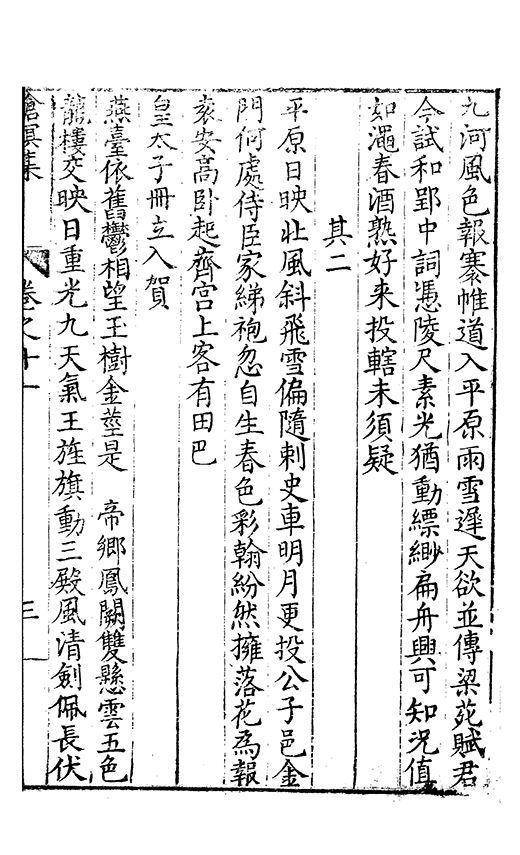 九河風色報褰帷道入平原雨雪遲天欲並傳梁苑賦君
今試和郢中詞憑陵尺素光猶動縹緲扁舟興可知況值
如澠春酒熟好来投轄未須疑
其二
平原日映壯風斜飛雪偏隨刺史車明月更投公子邑金
門何處侍臣家綈袍忽自生春色彩翰紛然擁落花為報
袁安高卧起齊宫上客有田巴
皇太子冊立入賀
燕臺依舊鬱相望玉樹金莖是　帝鄉鳳闕雙懸雲五色
龍樓交映日重光九天氣王旌旗動三殿風清劍佩長伏
滄溟集
卷之十一
三